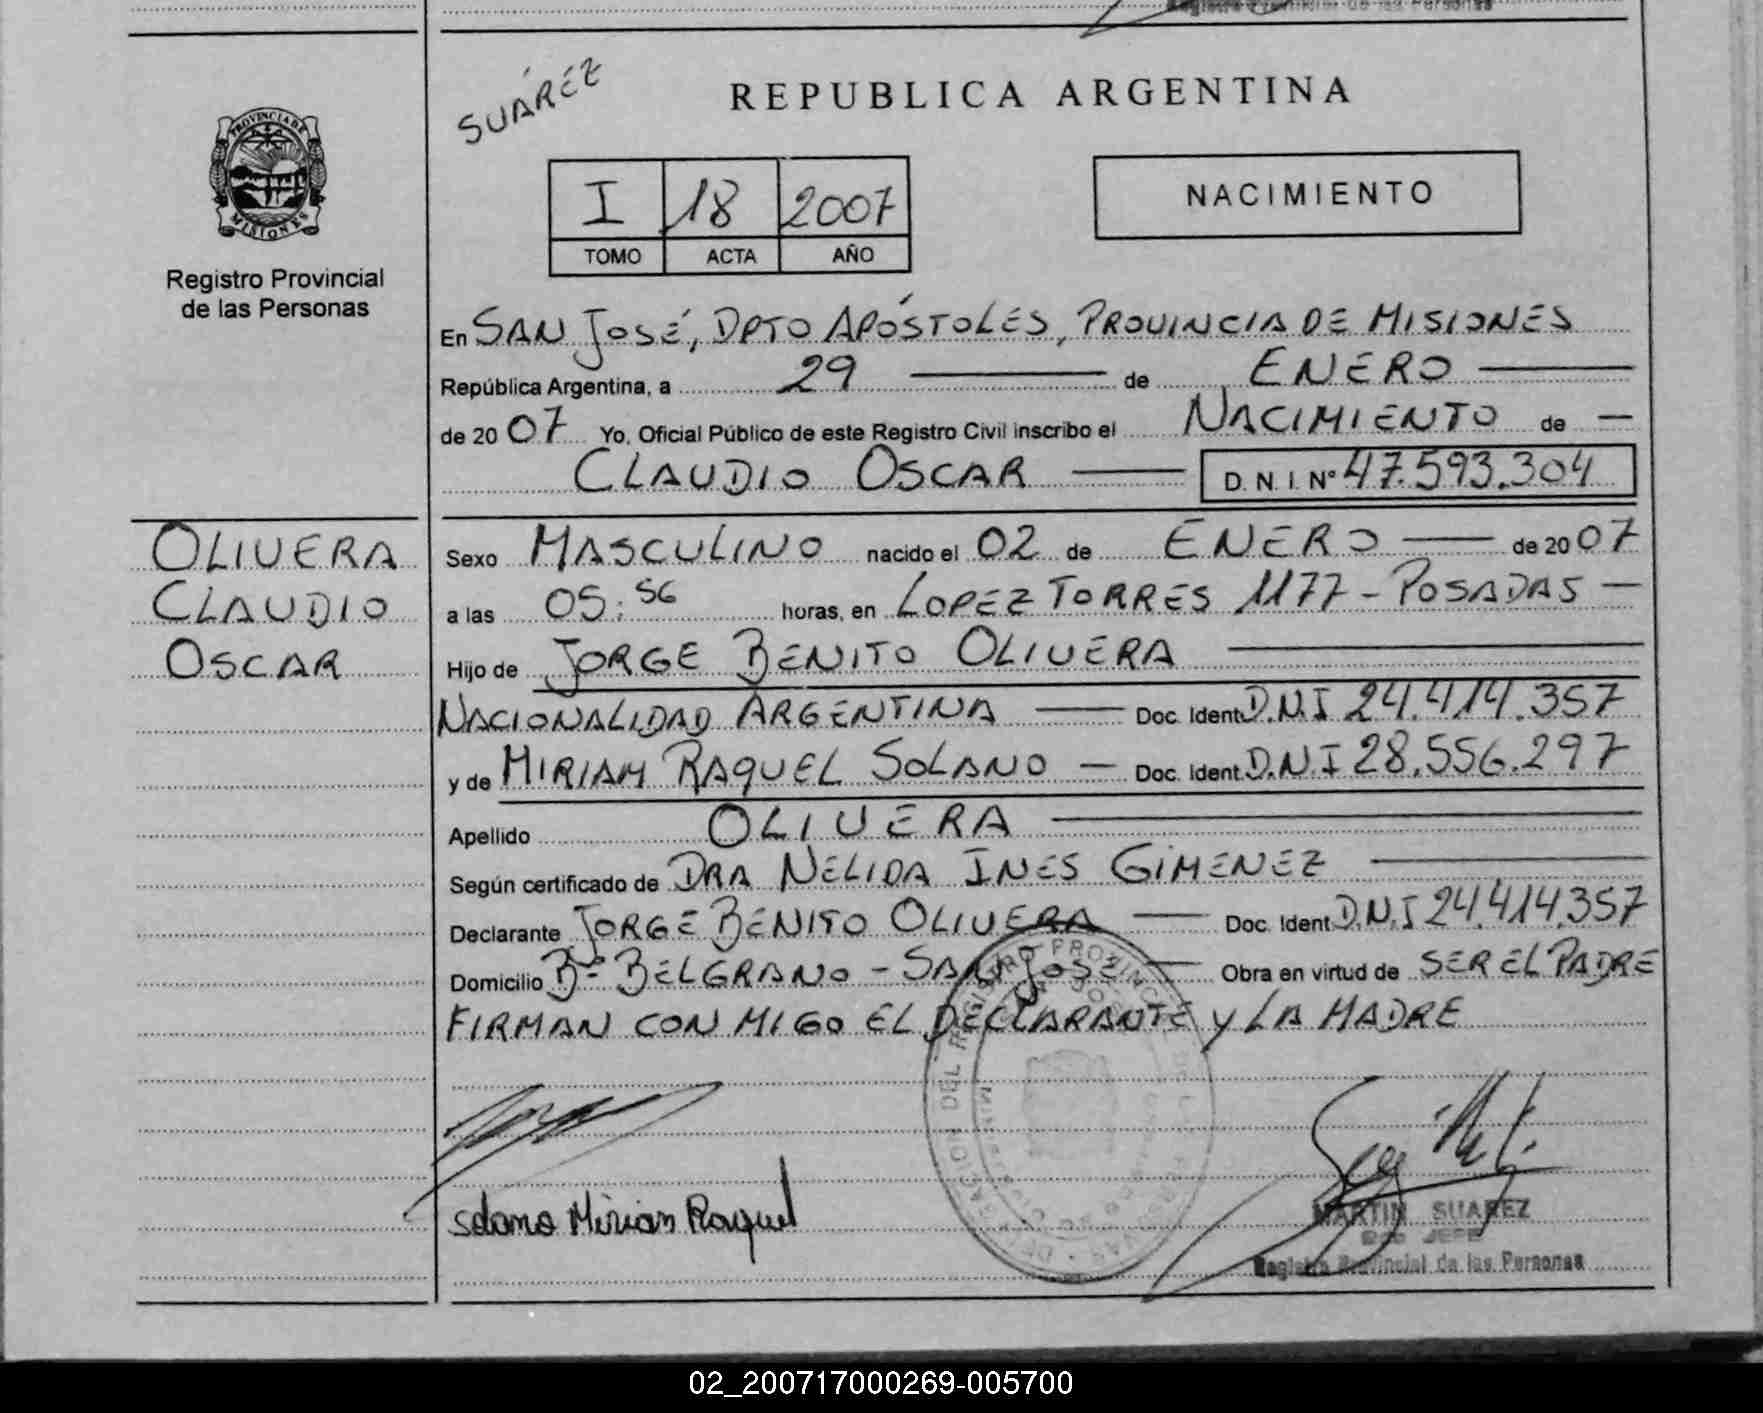 SUÁRÉZ
REPUBLICA ARGENTINA
PROVINCIA DE
MISIONES
I 18 2007
TOMO ACTA AÑO
NACIMIENTO
Registro Provincial
de las Personas
En SAN JOSÉ, DPTO APÓSTOLES, PROVINCIA DE MISIONES
República Argentina, a 29 de ENERO
de 20 07 Yo, Oficial Público de este Registro Civil inscribo el NACIMIENTO de
CLAUDIO OSCAR D. N. I. Nº 47.593.304
OLIVERA
CLAUDIO
OSCAR
Sexo MASCULINO nacido el 02 de ENERO de 20 07
a las 05:56 horas, en LOPEZ TORRES 1177 - POSADAS
Hijo de JORGE BENITO OLIVERA
NACIONALIDAD ARGENTINA Doc. Ident. D.N.I 24.414.357
y de MIRIAM RAQUEL SOLANO Doc. Ident. D.N.I 28.556.297
Apellido OLIVERA
Según certificado de DRA NELIDA INES GIMENEZ
Declarante JORGE BENITO OLIVERA Doc. Ident. D.N.I 24.414.357
Domicilio Bº BELGRANO - SAN JOSE Obra en virtud de SER EL PADRE
FIRMAN CON MIGO EL DECLARANTE Y LA MADRE
Solano Mirian Raquel
MARTIN SUAREZ
JEFE
Registro Provincial de las Personas
02_200717000269-005700